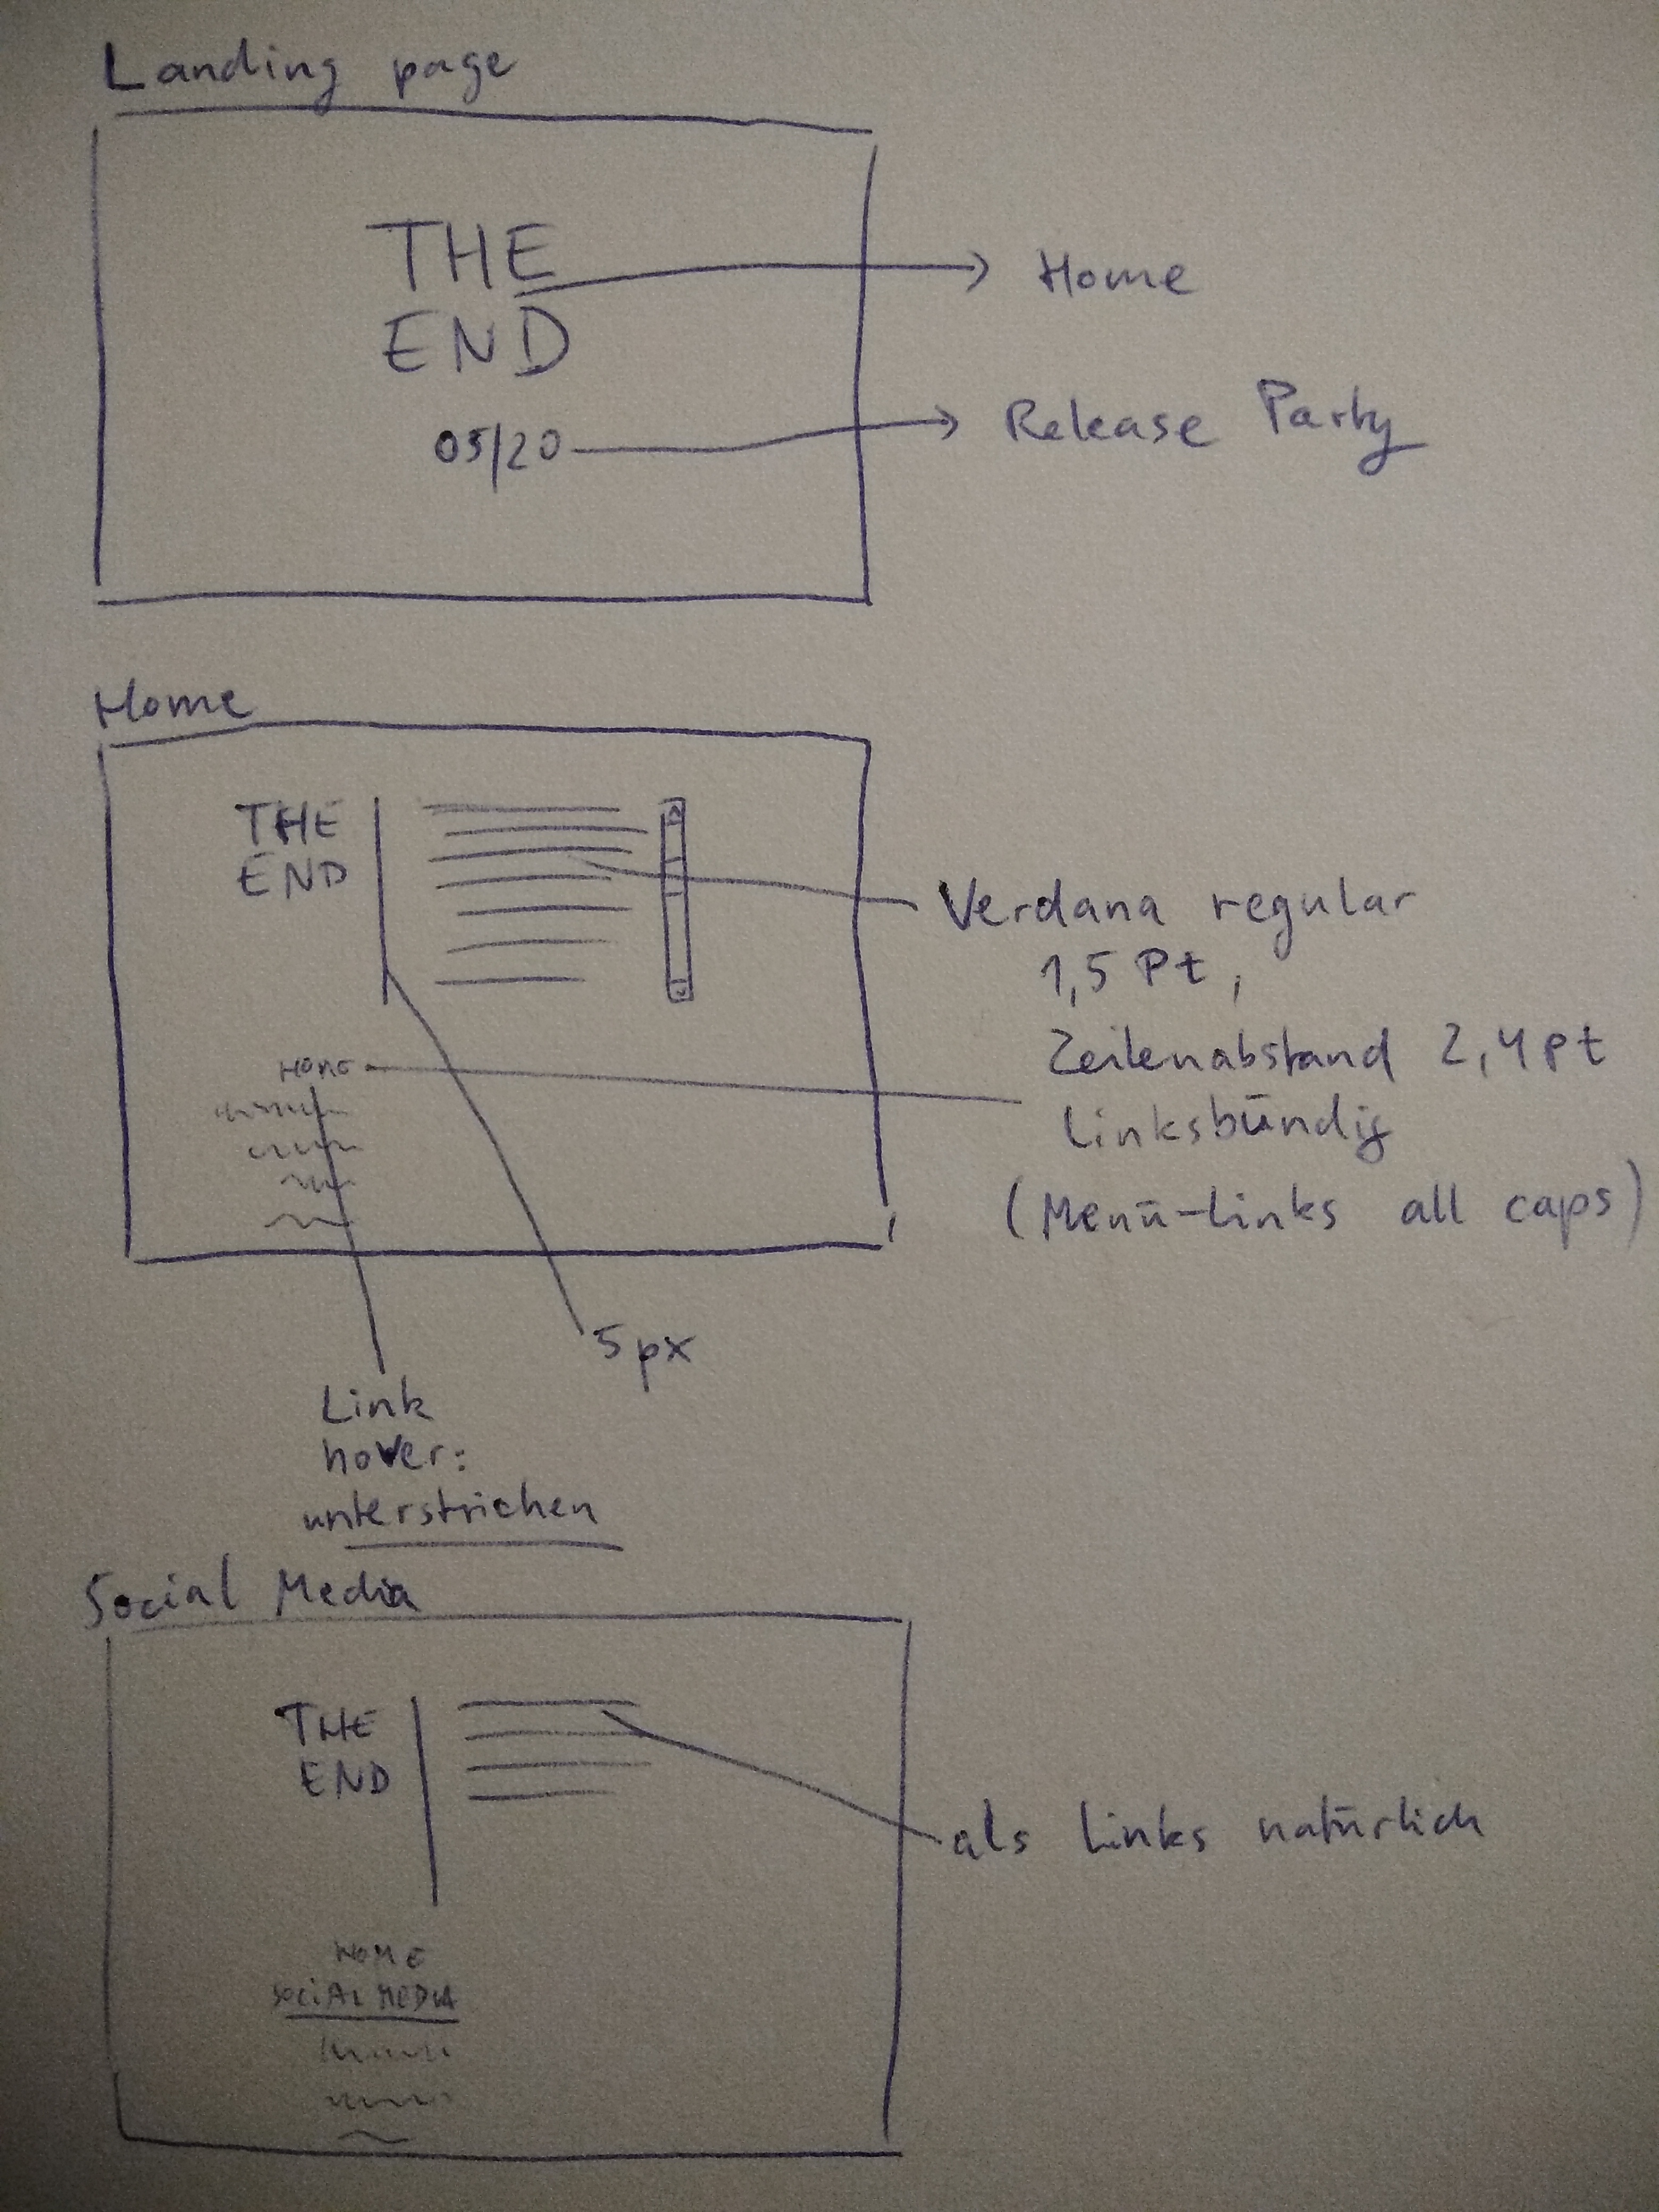 Landing page
THE
END
05/20
Home
Release Party
Home
THE
END
Verdana regular
1,5 Pt,
Zeilenabstand 2,4pt
linksbündig
(Menü-Links all caps)
HOME
5px
Link
hover:
unterstrichen
Social Media
THE
END
als Links natürlich
HOME
SOCIAL MEDIA